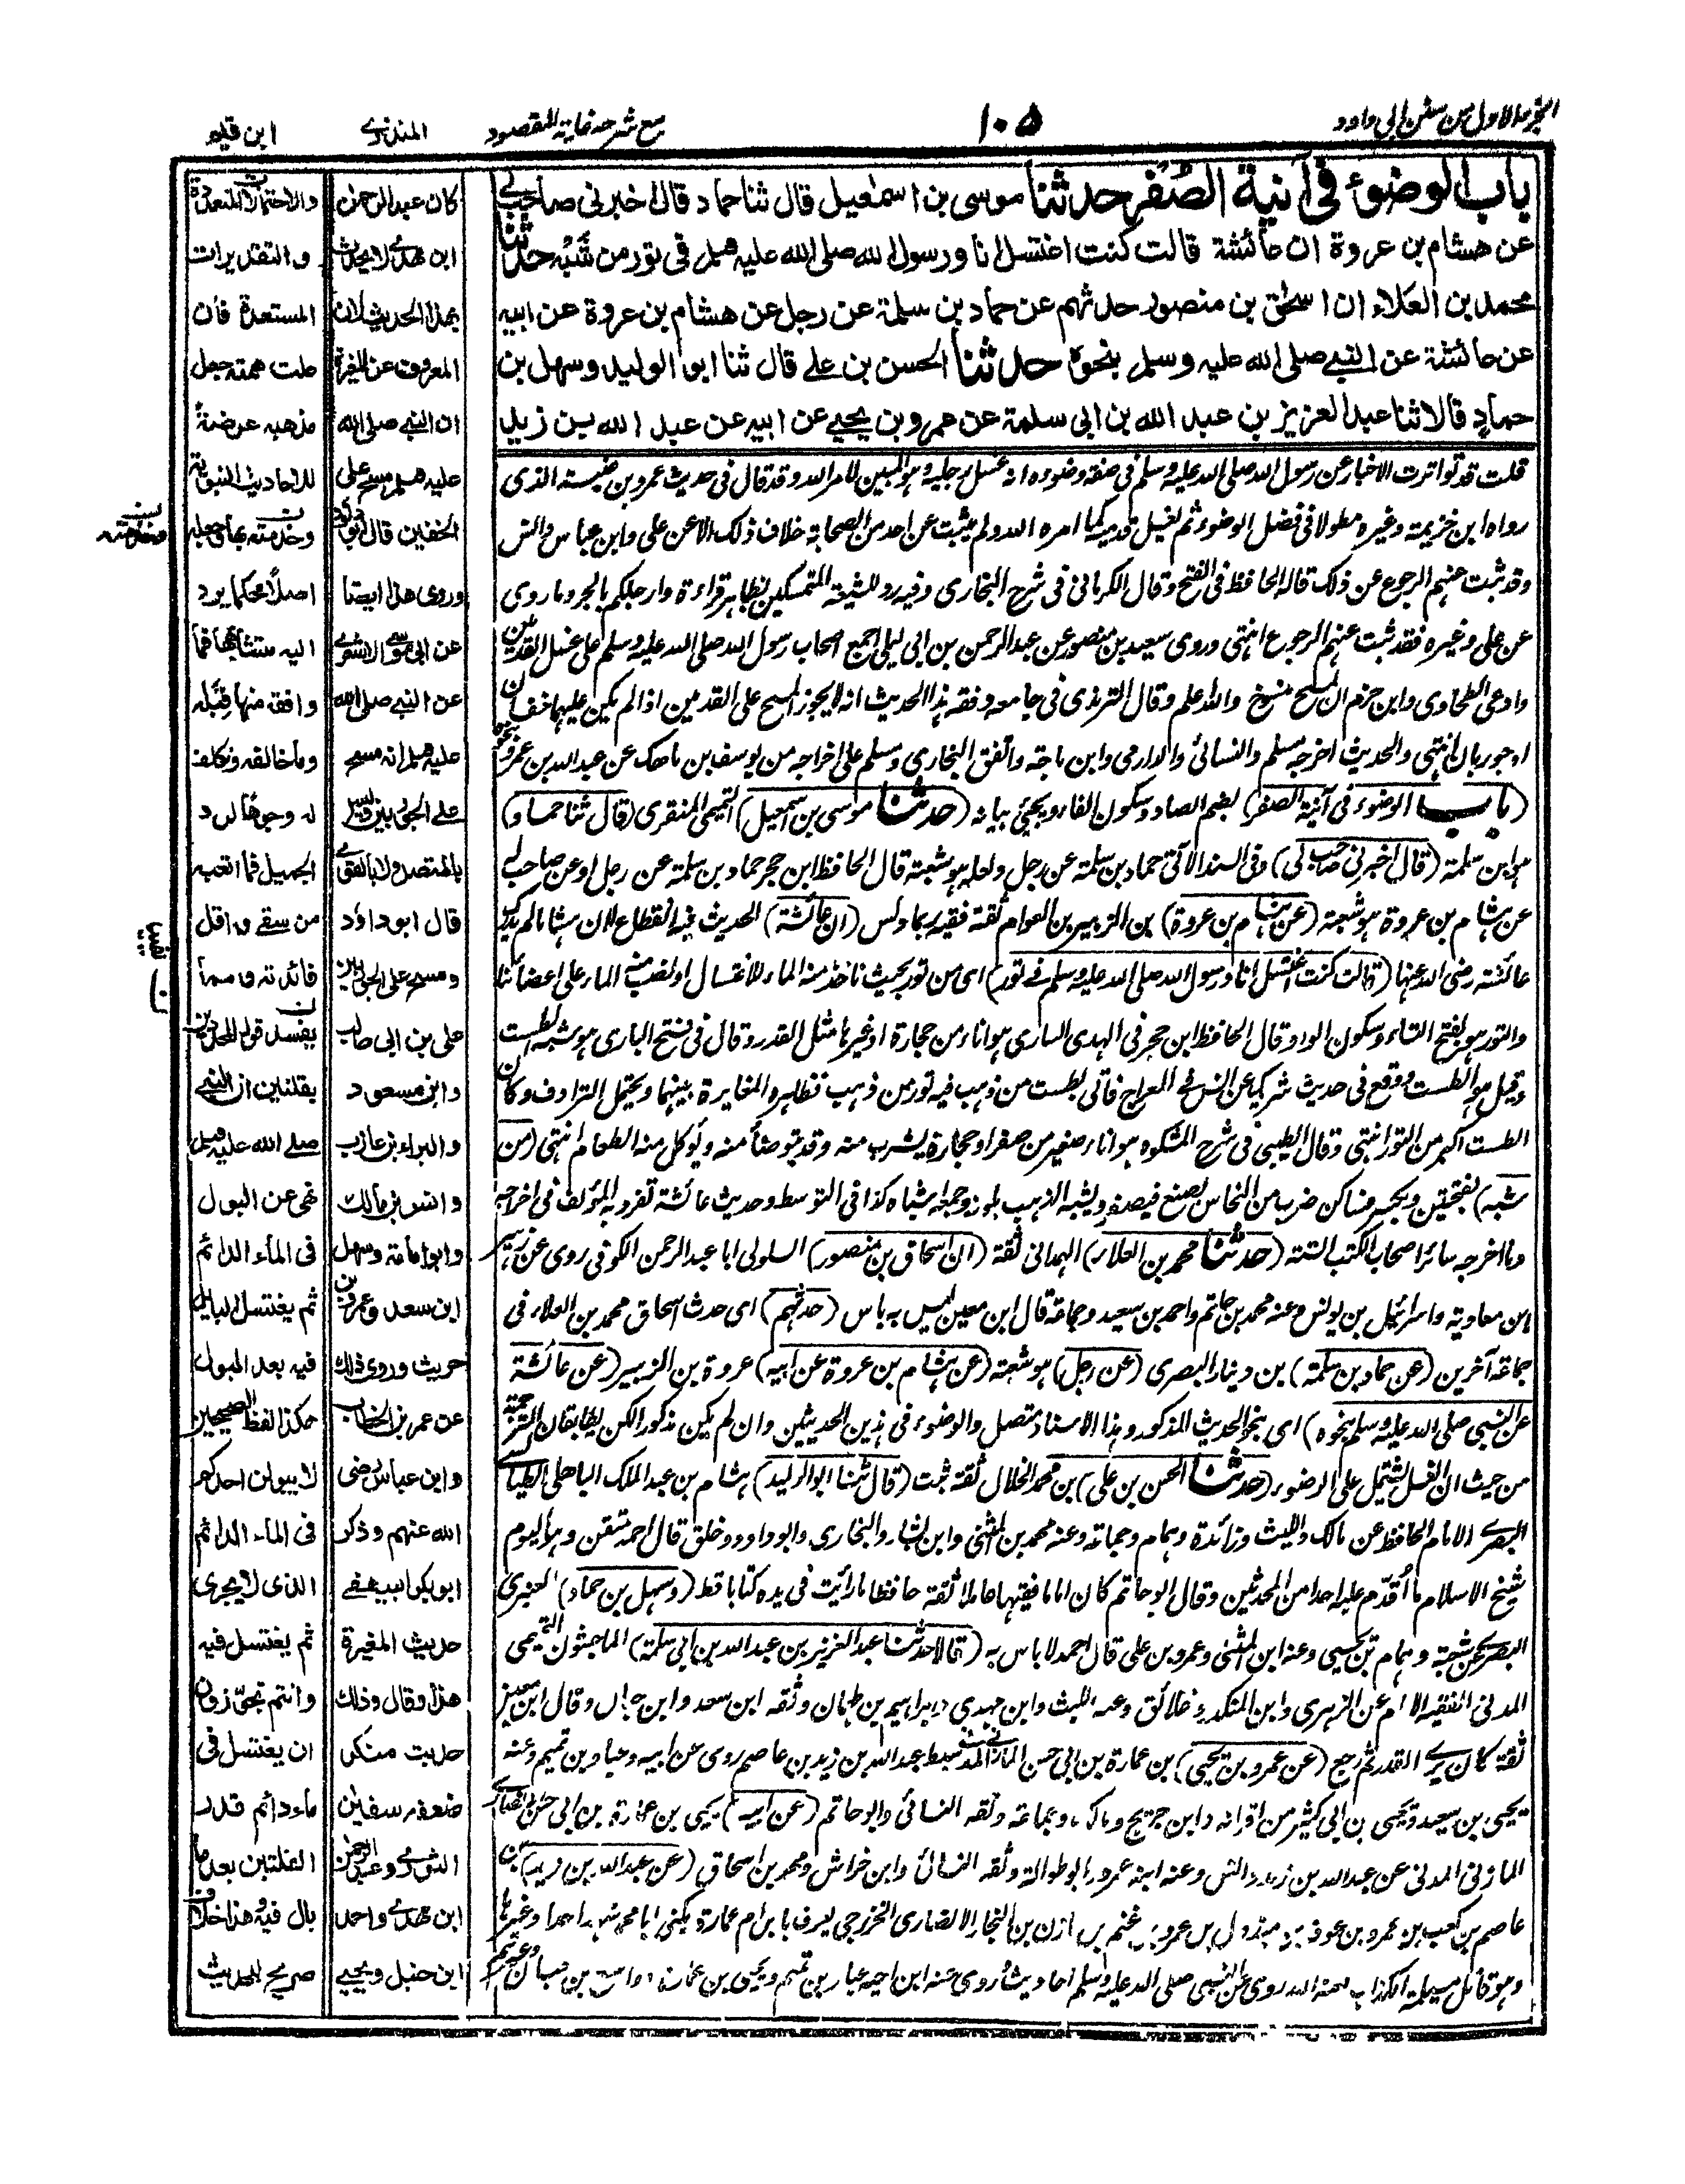 الجزء الاول من سنن ابي داود
١٠٥
مع شرحه غاية المقصود
المنذري
ابن قيم
باب الوضوء في آنية الصفر حدثنا موسى بن اسمعيل قال ثنا حماد قال اخبرني صاحب لي
عن هشام بن عروة ان عائشة قالت كنت اغتسل انا ورسول الله صلى الله عليه وسلم في تور من شبه حدثنا
محمد بن العلاء ان اسحق بن منصور حدثهم عن حماد بن سلمة عن رجل عن هشام بن عروة عن ابيه
عن عائشة عن النبي صلى الله عليه وسلم بنحوه حدثنا الحسن بن علي قال ثنا ابو الوليد وسهل بن
حماد قالا ثنا عبد العزيز بن عبد الله بن ابي سلمة عن عمرو بن يحيى عن ابيه عن عبد الله بن زيد
قلت قد تواترت الاخبار عن رسول الله صلى الله عليه وسلم في صفة وضوءه انه غسل رجليه وهو المبين لامر الله وقد قال في حديث عمرو بن عبسة الذي
رواه ابن خزيمة وغيره مطولا في فضل الوضوء ثم يغسل قدميه كما امره الله ولم يثبت عن احد من الصحابة خلاف ذلك الا عن علي وابن عباس وانس
وقد ثبت عنهم الرجوع عن ذلك قاله الحافظ في الفتح وقال الكرماني في شرح البخاري وفيه رد للشيعة المتمسكين بظاهر قراءة وارجلكم بالجر وما روي
عن علي وغيره فقد ثبت عنهم الرجوع انتهى وروى سعيد بن منصور عن عبد الرحمن بن ابي ليلى اجمع اصحاب رسول الله صلى الله عليه وسلم على غسل القدمين
وادعى الطحاوي وابن حزم ان المسح منسوخ والله اعلم وقال الترمذي في جامعه وفقه هذا الحديث انه لا يجوز المسح على القدمين اذا لم يكن عليهما خفان
او جوربان انتهى والحديث اخرجه مسلم والنسائي والدارمي وابن ماجة واتفق البخاري ومسلم على اخراجه من يوسف بن ماهك عن عبد الله بن عمرو بنحوه
(باب الوضوء في آنية الصفر) بضم الصاد وسكون الفاء ويجيئ بيانه (حدثنا موسى بن اسمعيل) التيمي المنقري (قال ثنا حماد)
هو ابن سلمة (قال اخبرني صاحب لي) وفي السند الآتي حماد بن سلمة عن رجل ولعله هو شعبة قال الحافظ ابن حجر حماد بن سلمة عن رجل او عن صاحب لي
عن هشام بن عروة هو شعبة (عن هشام بن عروة) بن الزبير بن العوام ثقة فقيه ربما دلس (ان عائشة) الحديث فيه انقطاع لان هشاما لم يدرك
عائشة رضي الله عنها (قالت كنت اغتسل انا ورسول الله صلى الله عليه وسلم في تور) اي من تور بحيث ناخذ منه الماء للاغتسال او نصب منه الماء على اعضائنا
والتور هو بفتح التاء وسكون الواو وقال الحافظ ابن حجر في الهدى الساري هو اناء من حجارة او غيرها مثل القدر وقال في فتح الباري هو شبه الطست
وقيل هو الطست ووقع في حديث شريك عن انس في المعراج فاتى بطست من ذهب فيه تور من ذهب فظاهره المغايرة بينهما ويحتمل الترادف وكان
الطست اكبر من التور انتهى وقال الطيبي في شرح المشكوه هو اناء صغير من صفر او حجارة يشرب منه وقد يتوضأ منه ويؤكل منه الطعام انتهى (من
شبه) بفتحتين وبكسر فساكن ضرب من النحاس يصنع فيصفر ويشبه الذهب بلونه وجمعه اشباه كذا في التوسط وحديث عائشة تفرد به المؤلف في اخراجه
وما اخرجه سائر اصحاب الكتب الستة (حدثنا محمد بن العلاء) الهمداني ثقة (ان اسحاق بن منصور) السلولي ابا عبد الرحمن الكوفي روى عن زهير
بن معاوية واسرائيل بن يونس وعنه محمد بن حاتم واحمد بن سعيد وجماعة قال ابن معين ليس به باس (حدثهم) اي حدث اسحاق محمد بن العلاء في
جماعة آخرين (عن حماد بن سلمة) بن دينار البصري (عن رجل) هو شعبة (عن هشام بن عروة عن ابيه) عروة بن الزبير (عن عائشة
عن النبي صلى الله عليه وسلم بنحوه) اي بنحو الحديث المذكور وهذا الاسناد متصل والوضوء في هذين الحديثين وان لم يكن مذكورا لكن يطابقان الترجمة
من حيث ان الغسل يشتمل على الوضوء (حدثنا الحسن بن علي) بن محمد الخلال ثقة ثبت (قال ثنا ابو الوليد) هشام بن عبد الملك الباهلي الطيالسي
البصري الامام الحافظ عن مالك والليث وزائدة وهمام وجماعة وعنه محمد بن المثنى وابن بشار والبخاري وابو داود وخلق قال احمد متقن وهو اليوم
شيخ الاسلام ما اقدم عليه احدا من المحدثين وقال ابو حاتم كان اماما فقيها عاملا ثقة حافظا ما رأيت في يده كتابا قط (وسهل بن حماد) العنبري
البصري عن شعبة وهمام بن يحيى وعنه ابن المثنى وعمرو بن علي قال احمد لا باس به (قالا حدثنا عبد العزيز بن عبد الله بن ابي سلمة) الماجشون التيمي
المدني الفقيه الامام عن الزهري وابن المنكدر وخلائق وعنه الليث وابن مهدي وابراهيم بن طهمان وثقه ابن سعد وابن حبان وقال ابن معين
ثقة كان يرى القدر ثم رجع (عن عمرو بن يحيى) بن عمارة بن ابي حسن المازني المدني سبط عبد الله بن زيد بن عاصم روى عن ابيه وعباد بن تميم وعنه
يحيى بن سعيد ويحيى بن ابي كثير من اقرانه وابن جريج ومالك وجماعة وثقه النسائي وابو حاتم (عن ابيه) يحيى بن عمارة بن ابي حسن الانصاري
المازني المدني عن عبد الله بن زيد وانس وعنه ابنه عمرو وابو طوالة وثقه النسائي وابن خراش ومحمد بن اسحاق (عن عبد الله بن زيد) بن
عاصم بن كعب بن عمرو بن عوف بن مبذول بن عمرو بن غنم بن مازن بن النجار الانصاري الخزرجي يعرف بابن ام عمارة يكنى ابا محمد شهد احدا وغيرها
وهو قاتل مسيلمة الكذاب لعنه الله روى عن النبي صلى الله عليه وسلم احاديث روى عنه ابن اخيه عباد بن تميم ويحيى بن عمارة وواسع بن حبان وغيرهم
كان عبد الرحمن
ابن مهدي لا يحدث
بهذا الحديث لان
المعروف عن المغيرة
ان النبي صلى الله
عليه وسلم مسح على
الخفين قال ابو داود
وروى هذا ايضا
عن ابي موسى الاشعري
عن النبي صلى الله
عليه وسلم انه مسح
على الجوربين وليس
بالمتصل ولا بالقوي
قال ابو داود
ومسح على الجوربين
علي بن ابي طالب
وابن مسعود
والبراء بن عازب
وانس بن مالك
وابو امامة وسهل
ابن سعد وعمرو بن
حريث وروى ذلك
عن عمر بن الخطاب
وابن عباس رضى
الله عنهم وذكر
ابو بكر البيهقي
حديث المغيرة
هذا وقال وذلك
حديث منكر
ضعفه سفين
الثوري وعبد الرحمن
ابن مهدي واحمد
ابن حنبل ويحيى
والاحتمالات المتعددة
والتقديرات
المستعدة فان
علت همته جعل
مذهبه عرضة
للاحاديث النبوية
وخدمته بها وجعله
اصلا محكما يرد
اليه متشابهها فما
وافقه منها قبله
وما خالفه وتكلف
له وجوها لرد
الجميل فما اتعبه
من سقي واقل
فائدته ومما
يفسد قول المحددين
بقلتين ان النبي
صلى الله عليه وسلم
نهى عن البول
في الماء الدائم
ثم يغتسل البائل
فيه بعد البول
هكذا لفظ الصحيحين
لا يبولن احدكم
في الماء الدائم
الذي لا يجري
ثم يغتسل فيه
وانتم تجوزون
ان يغتسل في
ماء دائم قدر
القلتين بعد ما
بال فيه وهذا خلاف
صريح الحديث